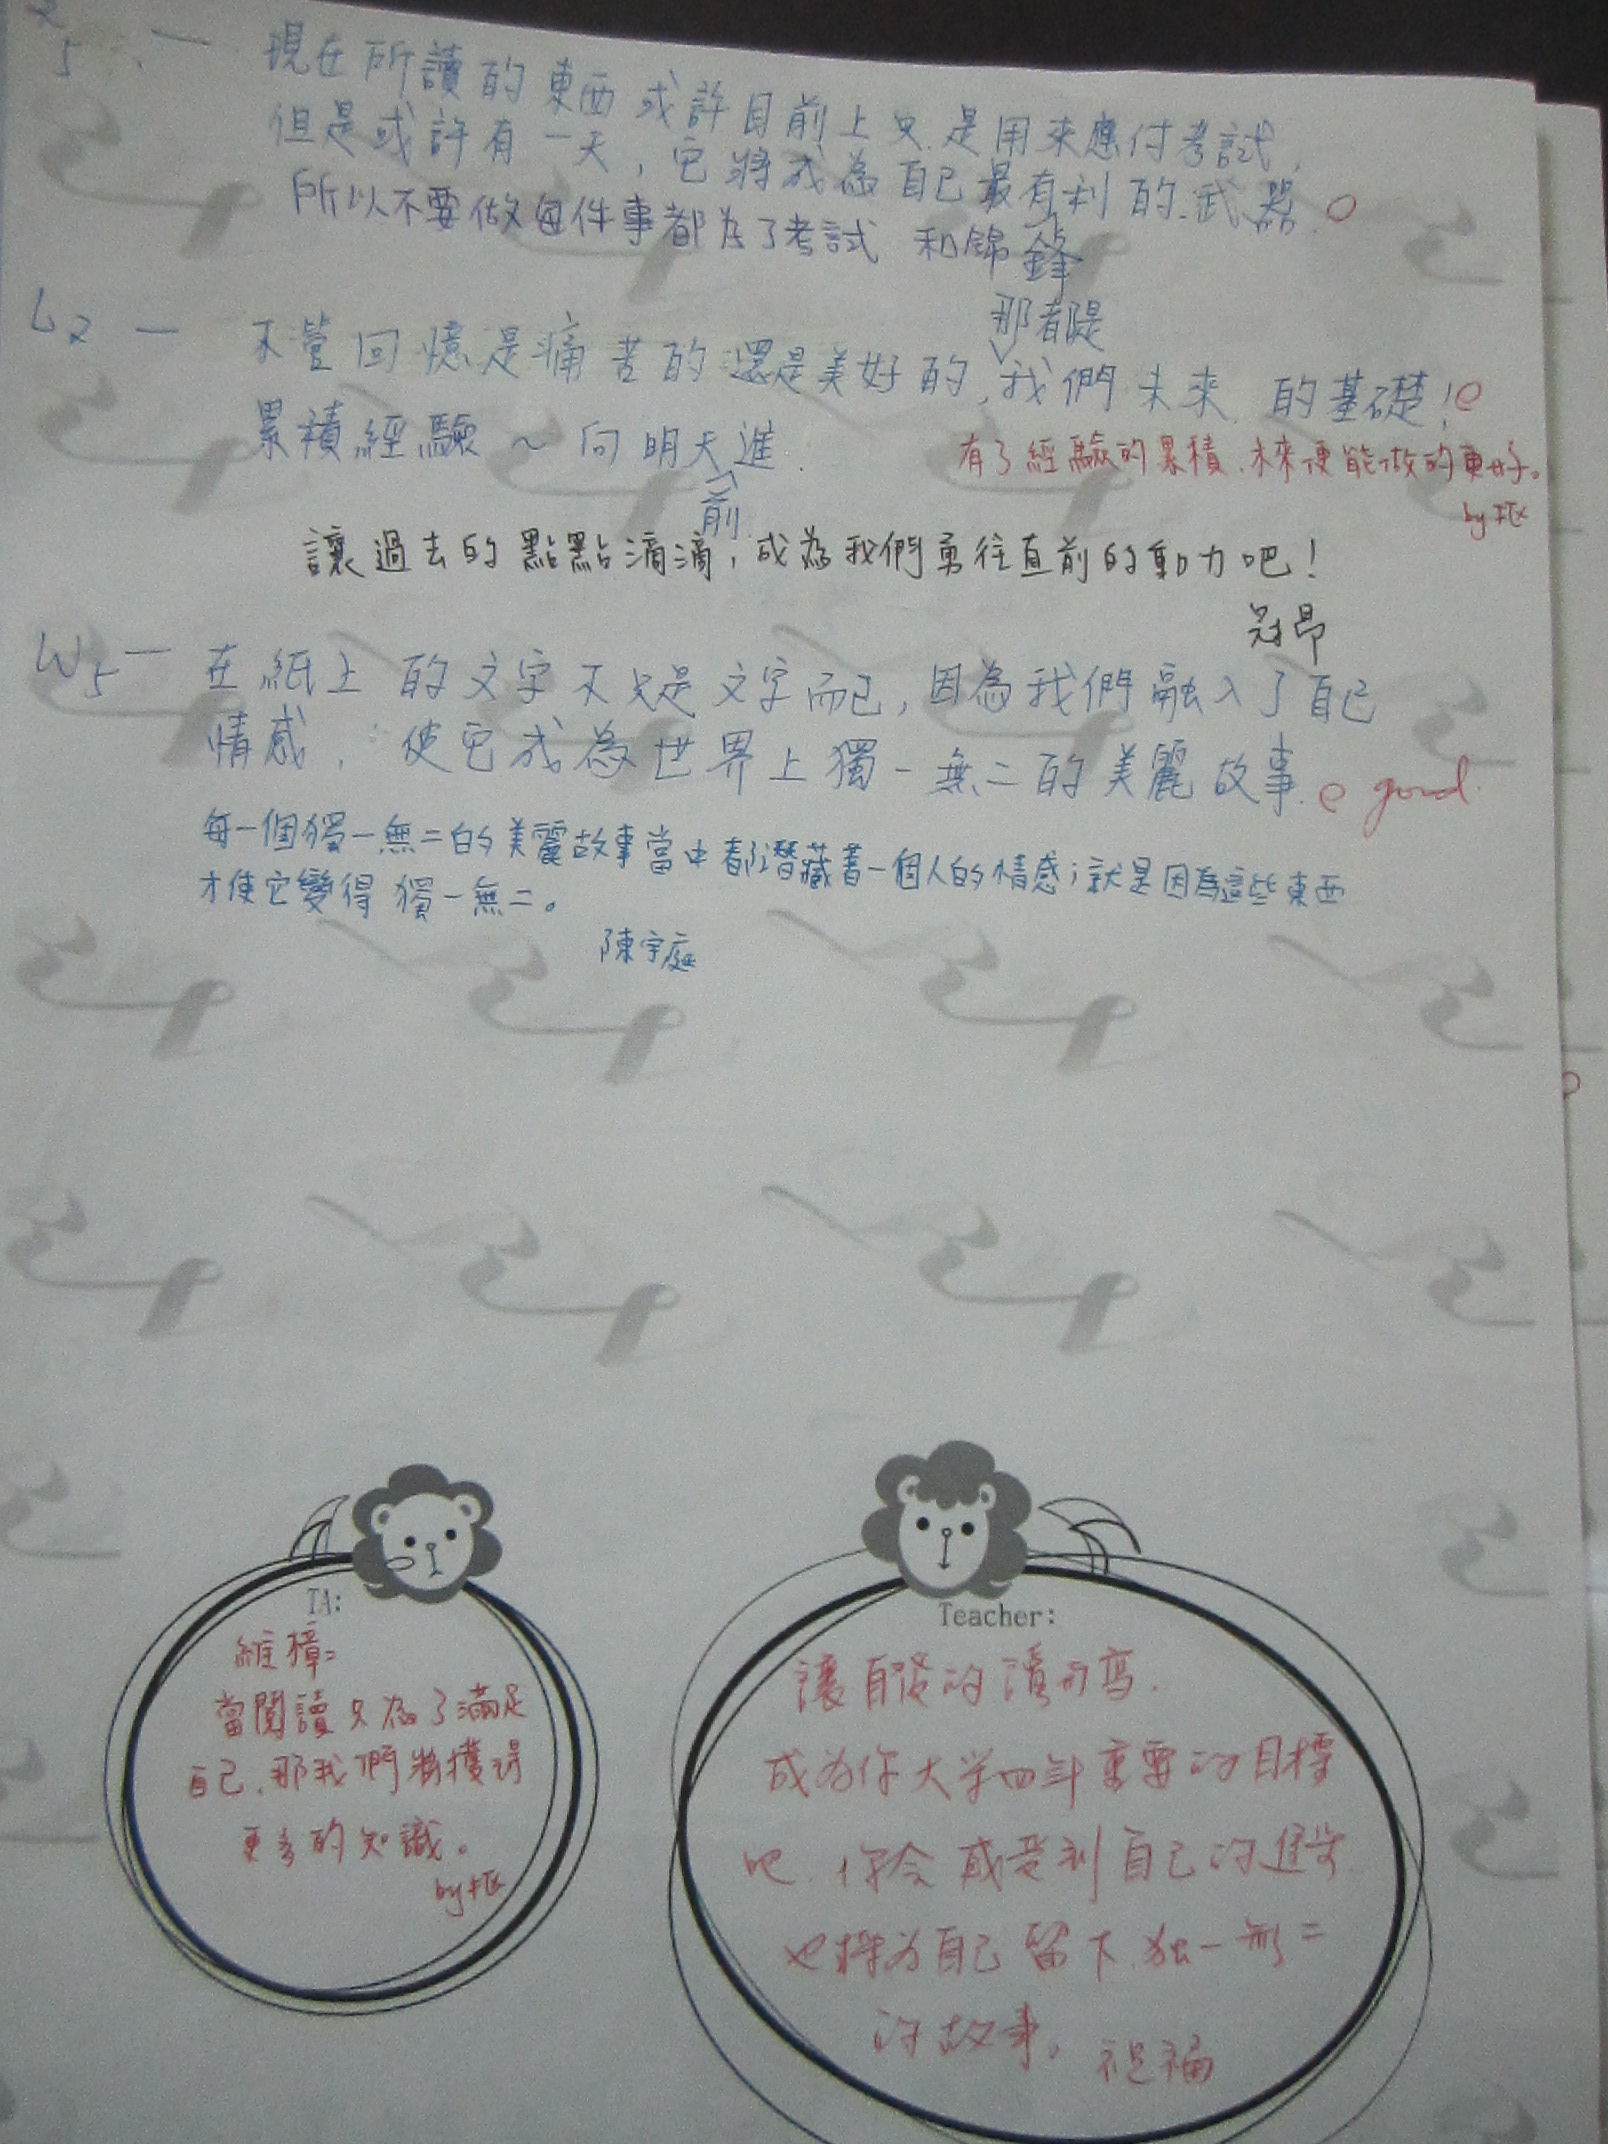 5 一 現在所讀的東西或許目前上只是用來應付考試,
但是或許有一天,它將成為自己最有利的武器.
所以不要做每件事都為了考試 和錦鋒
那都是
L2 一 不管回憶是痛苦的還是美好的,我們未來 的基礎!
累積經驗~向明天進.
前
有了經驗的累積、未來便能做的更好。
by 框
讓過去的點點滴滴,成為我們勇往直前的動力吧!
冠昂
W5 一 在紙上的文字不只是文字而已,因為我們融入了自己
情感,使它成為世界上獨一無二的美麗故事. good
每一個獨一無二的美麗故事當中都潛藏著一個人的情感;就是因為這些東西
才使它變得獨一無二。
陳宇庭
TA:
維樟:
當閱讀只為了滿足
自己,那我們將獲得
更多的知識。
by 框
Teacher:
讓自發的讀與寫.
成为你大学四年重要的目標
吧. 你会感受到自己的進步
也將为自己留下独一無二
的故事。 祝福